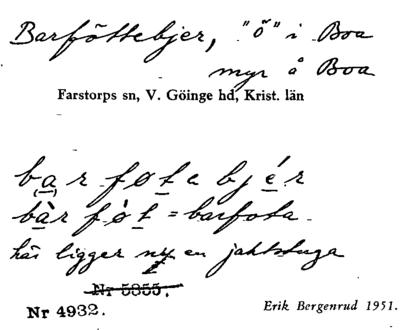 Barföttebjer, "ő" i Boa
myr å Boa
Farstorps sn, V. Göinge hd, Krist. län
bar føte bjér
bàr fòt = barfota
här ligger en jaktstuga
Nr 5355.
Nr 4932.
Erik Bergenrud 1951.